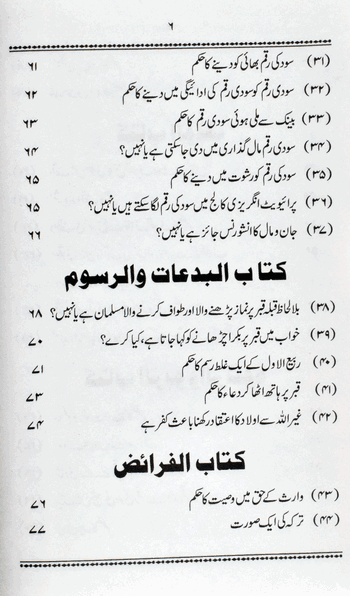 ۶
(۳۱) سود کی رقم بھائی کو دینے کا حکم ۶۱
(۳۲) سودی رقم کو سودی رقم کی ادائیگی میں دینے کا حکم ۶۲
(۳۳) بینک سے ملی ہوئی سودی رقم کا حکم ۶۳
(۳۴) سودی رقم مال گذاری میں دی جاسکتی ہے یا نہیں؟ ۶۴
(۳۵) سود کی رقم کو رشوت میں دینے کا حکم ۶۵
(۳۶) پرائیویٹ انگریزی کالج میں سود کی رقم لگا سکتے ہیں یا نہیں؟ ۶۵
(۳۷) جان و مال کا انشورنس جائز ہے یا نہیں؟ ۶۶
کتاب البدعات والرسوم
(۳۸) بلا لحاظ قبلہ قبر پر نماز پڑھنے والا اور طواف کرنے والا مسلمان ہے یا نہیں؟ ۶۸
(۳۹) خواب میں قبر پر بکرا چڑھانے کو کہا جاتا ہے، کیا کرے؟ ۷۰
(۴۰) ربیع الاول کے ایک غلط رسم کا حکم ۷۱
(۴۱) قبر پر ہاتھ اٹھا کر دعاء کا حکم ۷۳
(۴۲) غیر اللہ سے اولاد کا اعتقاد رکھنا باعث کفر ہے ۷۴
کتاب الفرائض
(۴۳) وارث کے حق میں وصیت کا حکم ۷۶
(۴۴) ترکہ کی ایک صورت ۷۷